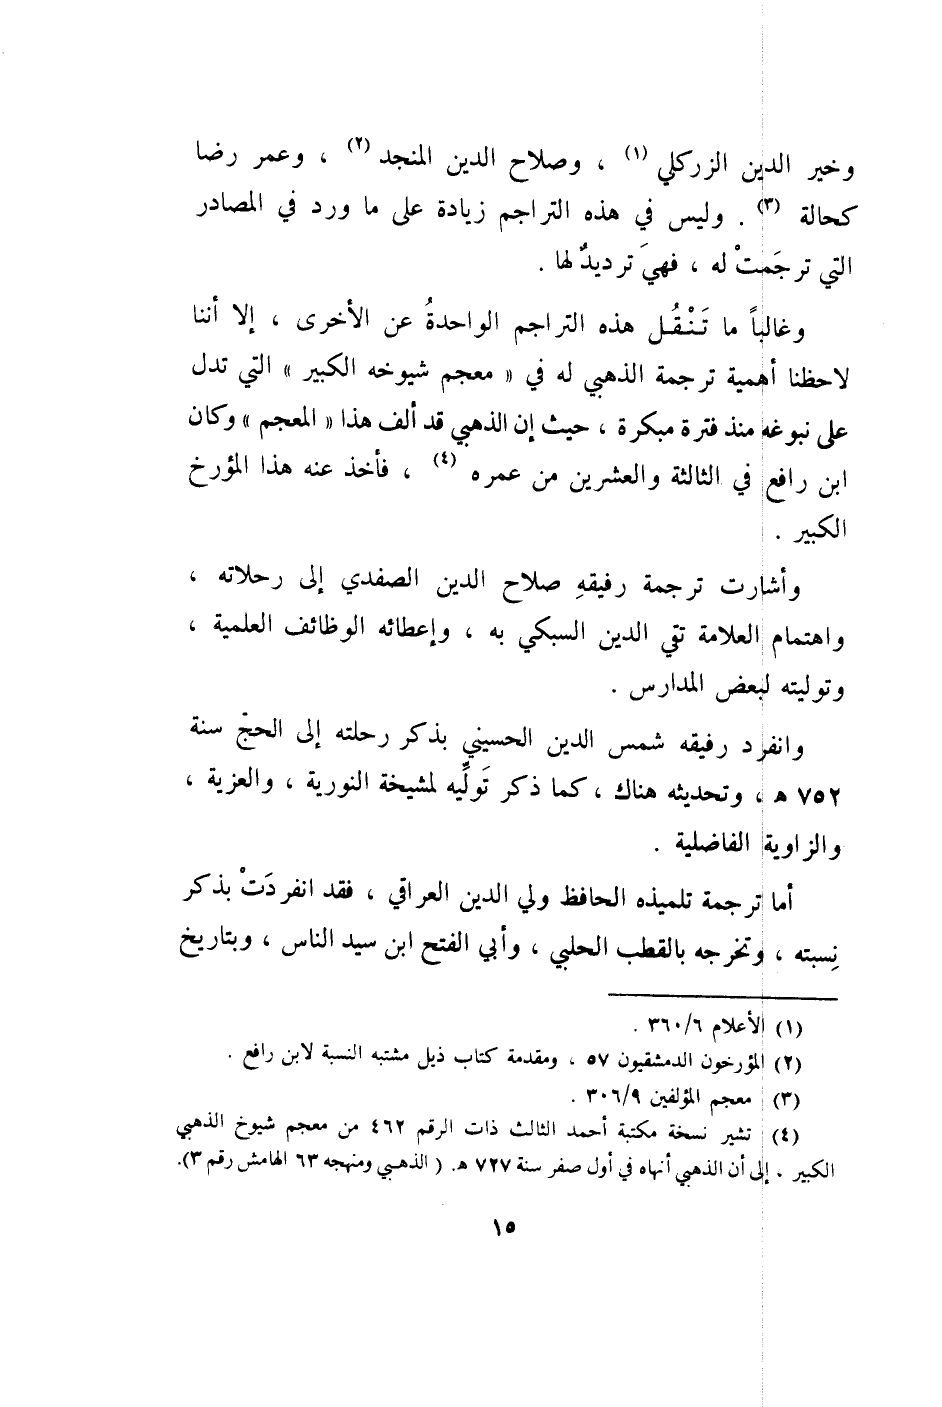 وخير الدين الزركلي (١) ، وصلاح الدين المنجد (٢) ، وعمر رضا
كحالة (٣) . وليس في هذه التراجم زيادة على ما ورد في المصادر
التي ترجَمتْ له ، فهيَ ترديدٌ لها .
وغالباً ما تَنْقُل هذه التراجم الواحدةُ عن الأخرى ، إلا أننا
لاحظنا أهمية ترجمة الذهبي له في « معجم شيوخه الكبير » التي تدل
على نبوغه منذ فترة مبكرة ، حيث إن الذهبي قد ألف هذا « المعجم » وكان
ابن رافع في الثالثة والعشرين من عمره (٤) ، فأخذ عنه هذا المؤرخ
الكبير .
وأشارت ترجمة رفيقهِ صلاح الدين الصفدي إلى رحلاته ،
واهتمام العلامة تقي الدين السبكي به ، وإعطائه الوظائف العلمية ،
وتوليته لبعض المدارس .
وانفرد رفيقه شمس الدين الحسيني بذكر رحلته إلى الحجّ سنة
٧٥٢ هـ ، وتحديثه هناك ، كما ذكر تَولِّيه لمشيخة النورية ، والعزية ،
والزاوية الفاضلية .
أما ترجمة تلميذه الحافظ ولي الدين العراقي ، فقد انفردَتْ بذكر
نِسبته ، وتخرجه بالقطب الحلبي ، وأبي الفتح ابن سيد الناس ، وبتاريخ
(١) الأعلام ٣٦٠/٦ .
(٢) المؤرخون الدمشقيون ٥٧ ، ومقدمة كتاب ذيل مشتبه النسبة لابن رافع .
(٣) معجم المؤلفين ٣٠٦/٩ .
(٤) تشير نسخة مكتبة أحمد الثالث ذات الرقم ٤٦٢ من معجم شيوخ الذهبي
الكبير . إلى أن الذهبي أنهاه في أول صفر سنة ٧٢٧ هـ. ( الذهبي ومنهجه ٦٣ الهامش رقم ٣).
١٥